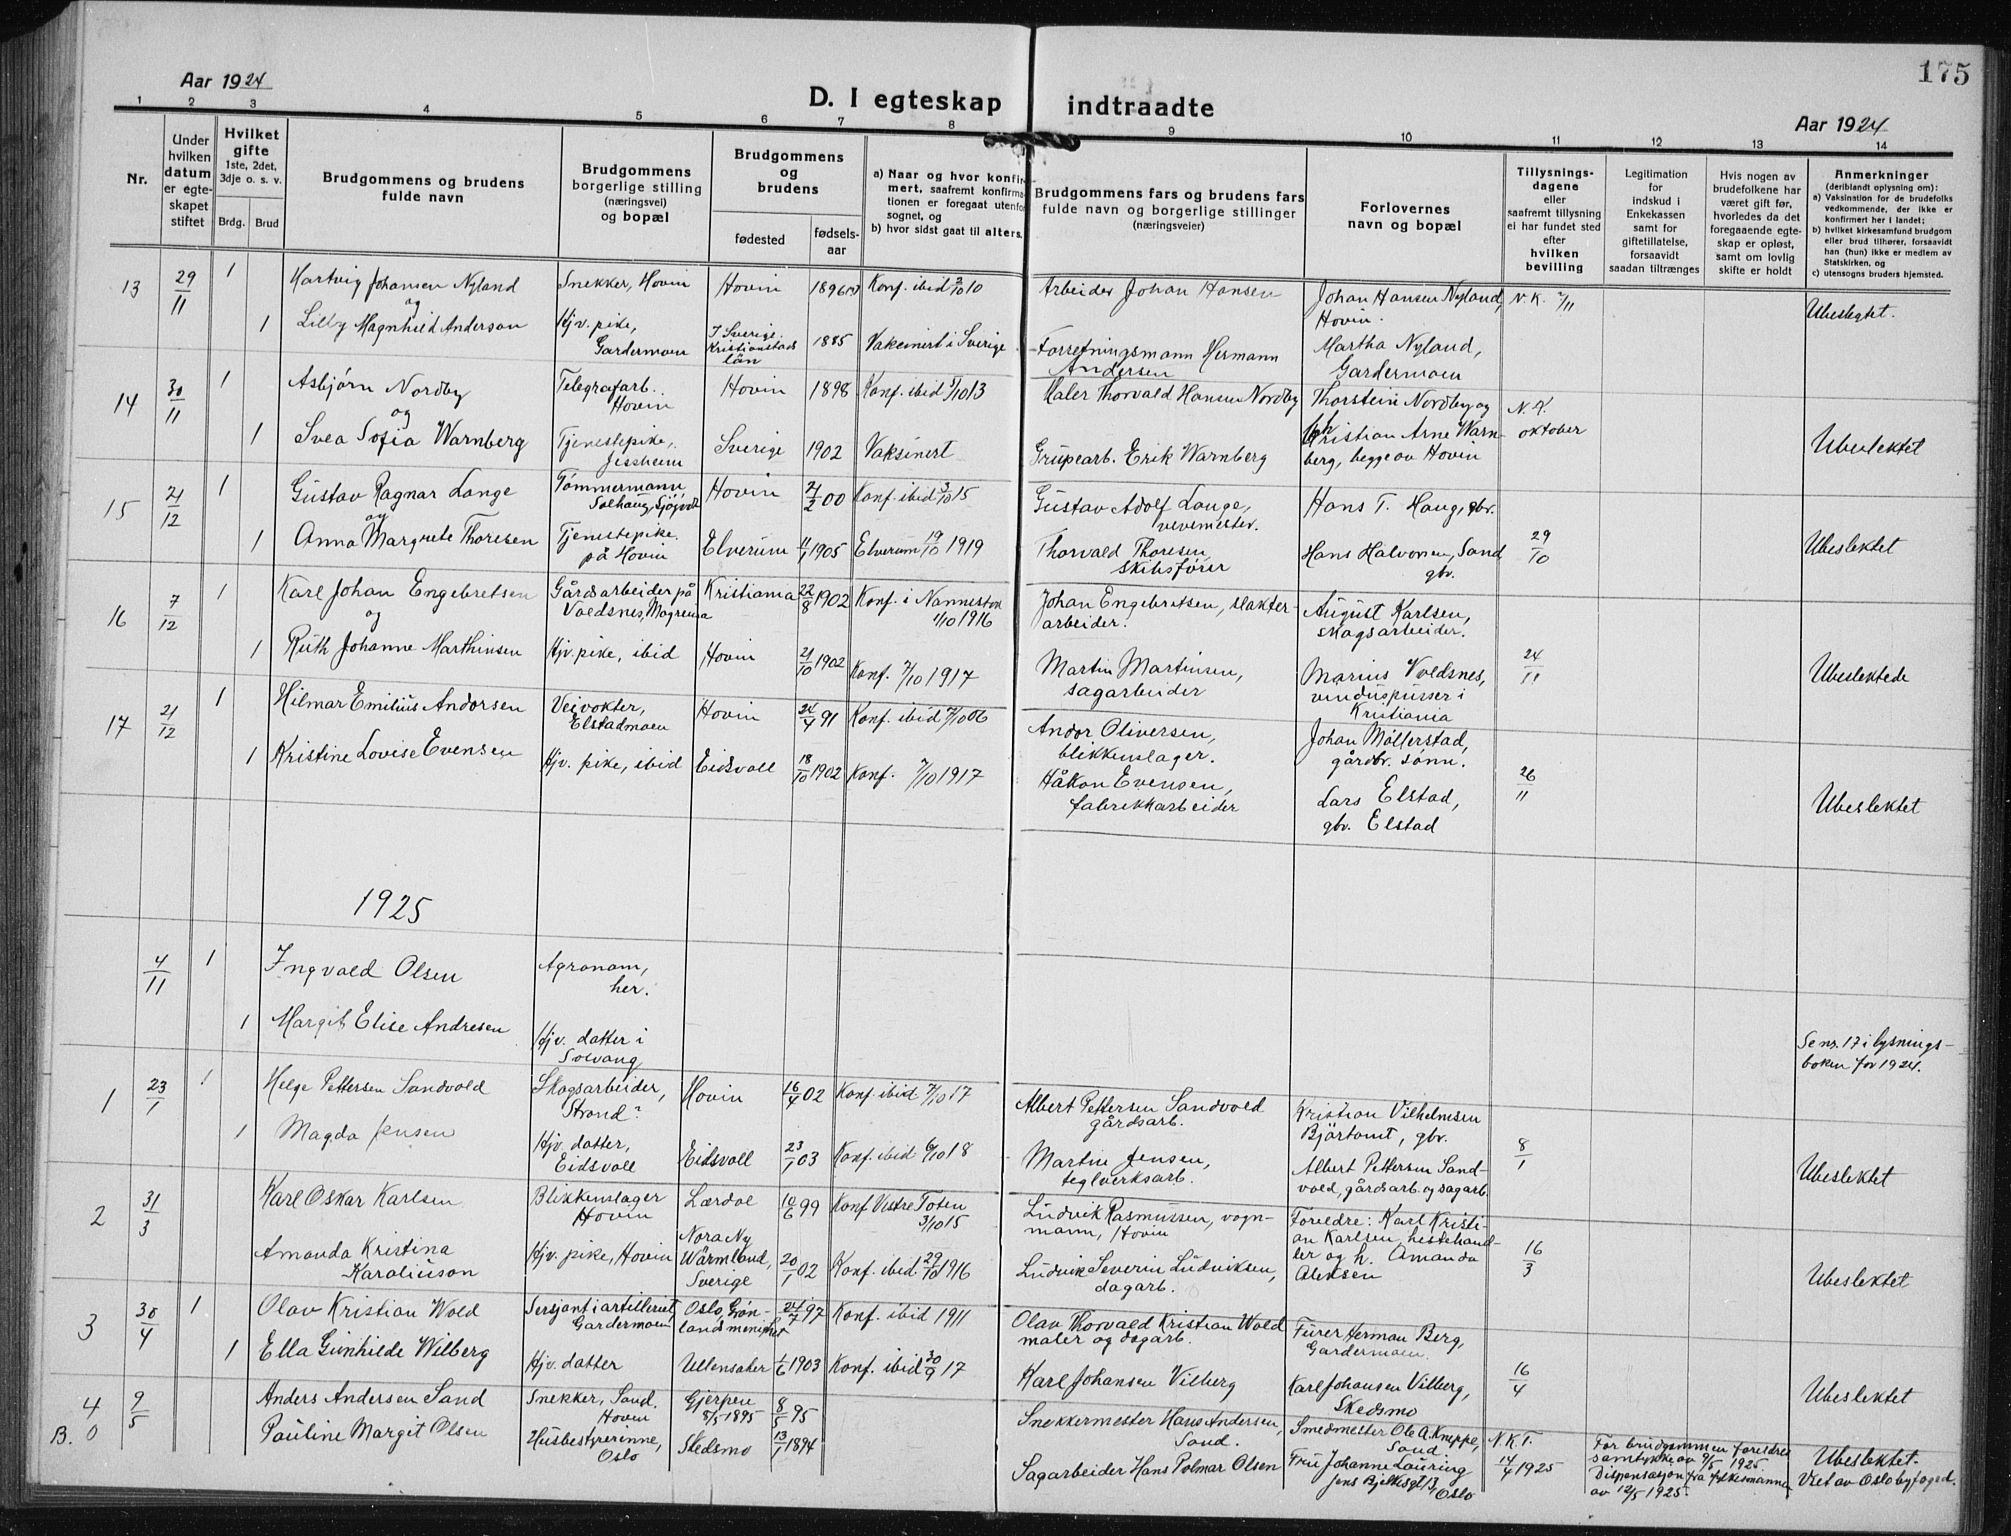 175
Aar 1924
D. I egteskap indtraadte
Aar 1924
1 2 3 4 5 6 7 8 9 10 11 12 13 14
Nr.
Under hvilken datum er egteskapet stiftet
Hvilket gifte
1ste, 2det, 3dje o. s. v.
Brdg. Brud
Brudgommens og brudens fulde navn
Brudgommens borgerlige stilling (næringsvei) og bopæl
Brudgommens og brudens
fødested fødselsaar
a) Naar og hvor konfirmert, saafremt konfirmationen er foregaat utenfor sognet, og
b) hvor sidst gaat til alters.
Brudgommens fars og brudens fars fulde navn og borgerlige stillinger (næringsveier)
Forlovernes navn og bopæl
Tillysningsdagene eller saafremt tillysning ei har fundet sted efter hvilken bevilling
Legitimation for indskud i Enkekassen samt for giftetillatelse, forsaavidt saadan tiltrænges
Hvis nogen av brudefolkene har været gift før, hvorledes da det foregaaende egteskap er opløst, samt om lovlig skifte er holdt
Anmerkninger
(deriblandt oplysning om):
a) Vaksination for de brudefolks vedkommende, der ikke er konfirmert her i landet;
b) hvilket kirkesamfund brudgom eller brud tilhører, forsaavidt han (hun) ikke er medlem av Statskirken, og
c) utensogns bruders hjemsted.
13 29/11 1 Hartvig Johansen Nyland Snekker, Hovin Hovin 1896 Konf. ibid 2/10 10 Arbeider Johan Hansen Johan Hansen Nyland, Hovin. N.K. 2/11 Ubeslegtet.
og
1 Lilly Magnhild Anderson Hjv. pike, Gardermoen I Sverige. Kristianstads län 1885 Vakcinert i Sverige Forretningsmann Hermann Andersen Martha Nyland, Gardermoen
14 30/11 1 Asbjørn Nordby Telegrafarb. Hovin Hovin 1898 Konf. ibid 5/10 13 Maler Thorvald Hansen Nordby Thorstein Nordby og N.K. oktober
og
1 Svea Sofia Warnberg Tjenestepike, Jessheim Sverige 1902 Vaksinert Grupearb. Erik Warnberg Christian Arne Warnberg, begge av Hovin Ubeslektet
15 21/12 1 Gustav Ragnar Lange Tømmermann Solhaug, Hovin 21/2 00 Konf. ibid 3/10 15 Gustav Adolf Lange, vevemester. Hans T. Haug, gbr.
og
1 Anna Margrete Thoresen Tjenestepike. på Hovin Elverum 11/1 1905 Elverum 19/10 1919 Thorvald Thoresen, skibsfører Hans Halvorsen, Sand gbr. 29/10 Ubeslektet
16 7/12 1 Karl Johan Engebretsen Gårdsarbeider på Voldsnes, Mogreina Kristiania 22/8 1902 Konf. i Nannestad 1/10 1916 Johan Engebretsen, slakterarbeider. August Karlsen, skogsarbeider.
og
1 Ruth Johanne Marthinsen Hjv. pike, ibid Hovin 21/10 1902 Konf. 7/10 1917 Martin Martinsen, sagarbeider Marius Voldsnes, vinduspusser i Kristiania 24/11 Ubeslektede
17 21/12 1 Hilmar Emilius Andorsen Veivokter, Elstadmoen Hovin 24/4 91 Konf. ibid 7/10 06 Andor Oliversen, blikkenslager. Johan Møllerstad, gårdbr. sønn.
1 Kristine Lovise Evensen Hjv. pike, ibid Eidsvoll 18/10 1902 Konf. 7/10 1917 Håkon Evensen, fabrikkarbeider Lars Elstad, gbr. Elstad 26/11 Ubeslektet
1925
4/11 1 Ingvald Olsen Agronom, her.
1 Margit Elise Andresen Hjv. datter i Solvang Se nr. 17 i lysningsboken for 1924.
1 23/1 1 Helge Pettersen Sandvold Skogsarbeider, Strand? Hovin 16/4 02 Konf. ibid 7/10 17 Albert Pettersen Sandvold gårdsarb. Kristian Vilhelmsen Bjørtomt, gbr.
1 Magda Jensen Hjv. datter, Eidsvoll Eidsvoll 23/1 03 Konf. ibid 6/10 18 Martin Jensen, teglverksarb. Albert Pettersen Sandvold, gårdsarb. og sagarb. 8/1 Ubeslektet
2 31/3 Karl Oskar Karlsen Blikkenslager Hovin Lærdal 10/6 99 Konf Vestre Toten 3/10 15 Ludvik Rasmussen, vognmann, Hovin Foreldre: Karl Kristian Karlsen, hestehandler og h. Amanda Aleksen
Amanda Kristina Karoliuson Hjv. pike, Hovin Nora Ny Wärmland, Sverige 20/1 02 Konf. ibid 29/10 1916 Ludvik Severin Ludviksen, dagarb. 16/3 Ubeslektet
3 30/4 1 Olav Kristian Wold Sersjant i artilleriet, Gardermoen Oslo, Grønlands menighet 24/7 97 Konf. ibid 1911 Olav Thorvald Kristian Wold maler og dagarb. Furer Herman Berg, Gardermoen.
1 Ella Gunhilde Wilberg Hjv. datter Ullensaker 1/6 1903 Konf. ibid 30/9 17 Karl Johansen Vilberg Karl Johansen Vilberg, Skedsmo 16/4 Ubeslektet
4 9/5 Anders Andersen Sand Snekker, Sand, Hovin Gjerpen 8/5 1895 8/5 95 Snekkermester Hans Andersen, Sand. Smedmester Ole A. Kneppe, Sand N.K.T. For brudgommen foreldres samtykke av 9/5 1925
B. 0 Pauline Margit Olsen Husbestyrerinne, Oslo Skedsmo 13/1 1894 Sagarbeider Hans Polmar Olsen Fru Johanne Lauring Jens Bjelkesgt 13, Oslo 14/4 1925 Dispensasjon fra fylkesmannen av 12/5 1925. Ubeslektet. Viet av Oslo byfoged.